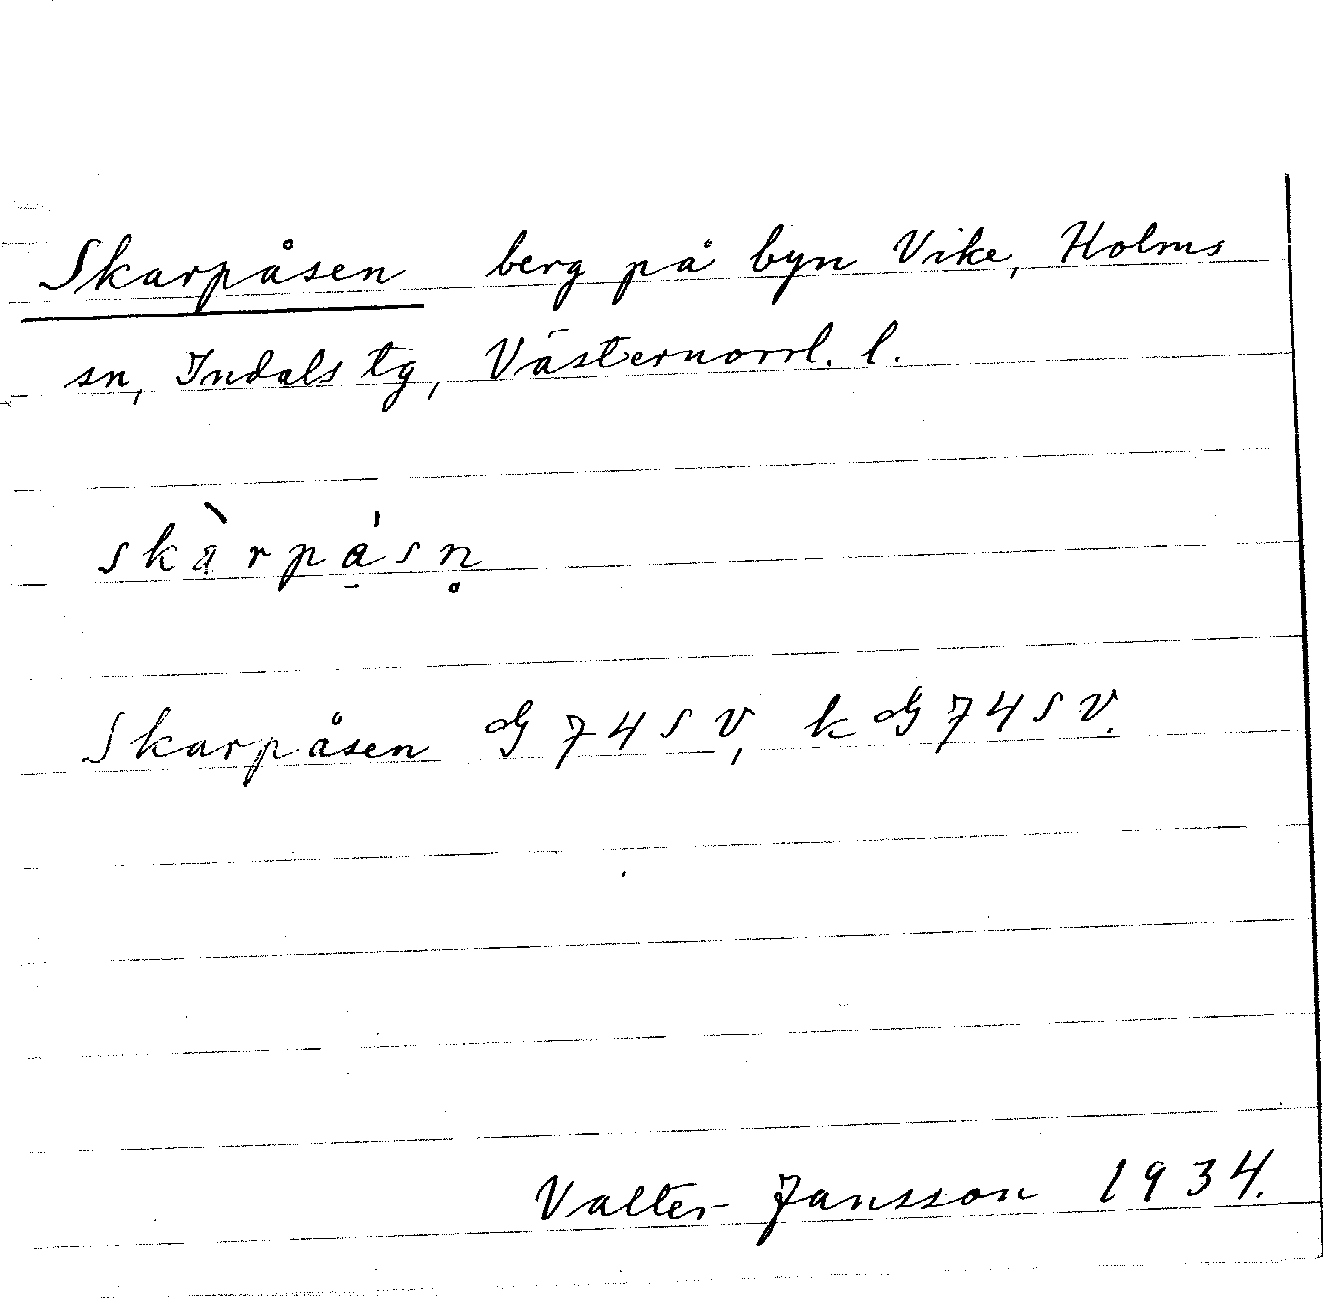 Skarpåsen berg på byn Vike, Holms
sn, Indals tg, Västernorrl. l.
skàrpa̱̍sn̥
Skarpåsen G 74 S V, k G 74 S V.
Valter Jansson 1934.